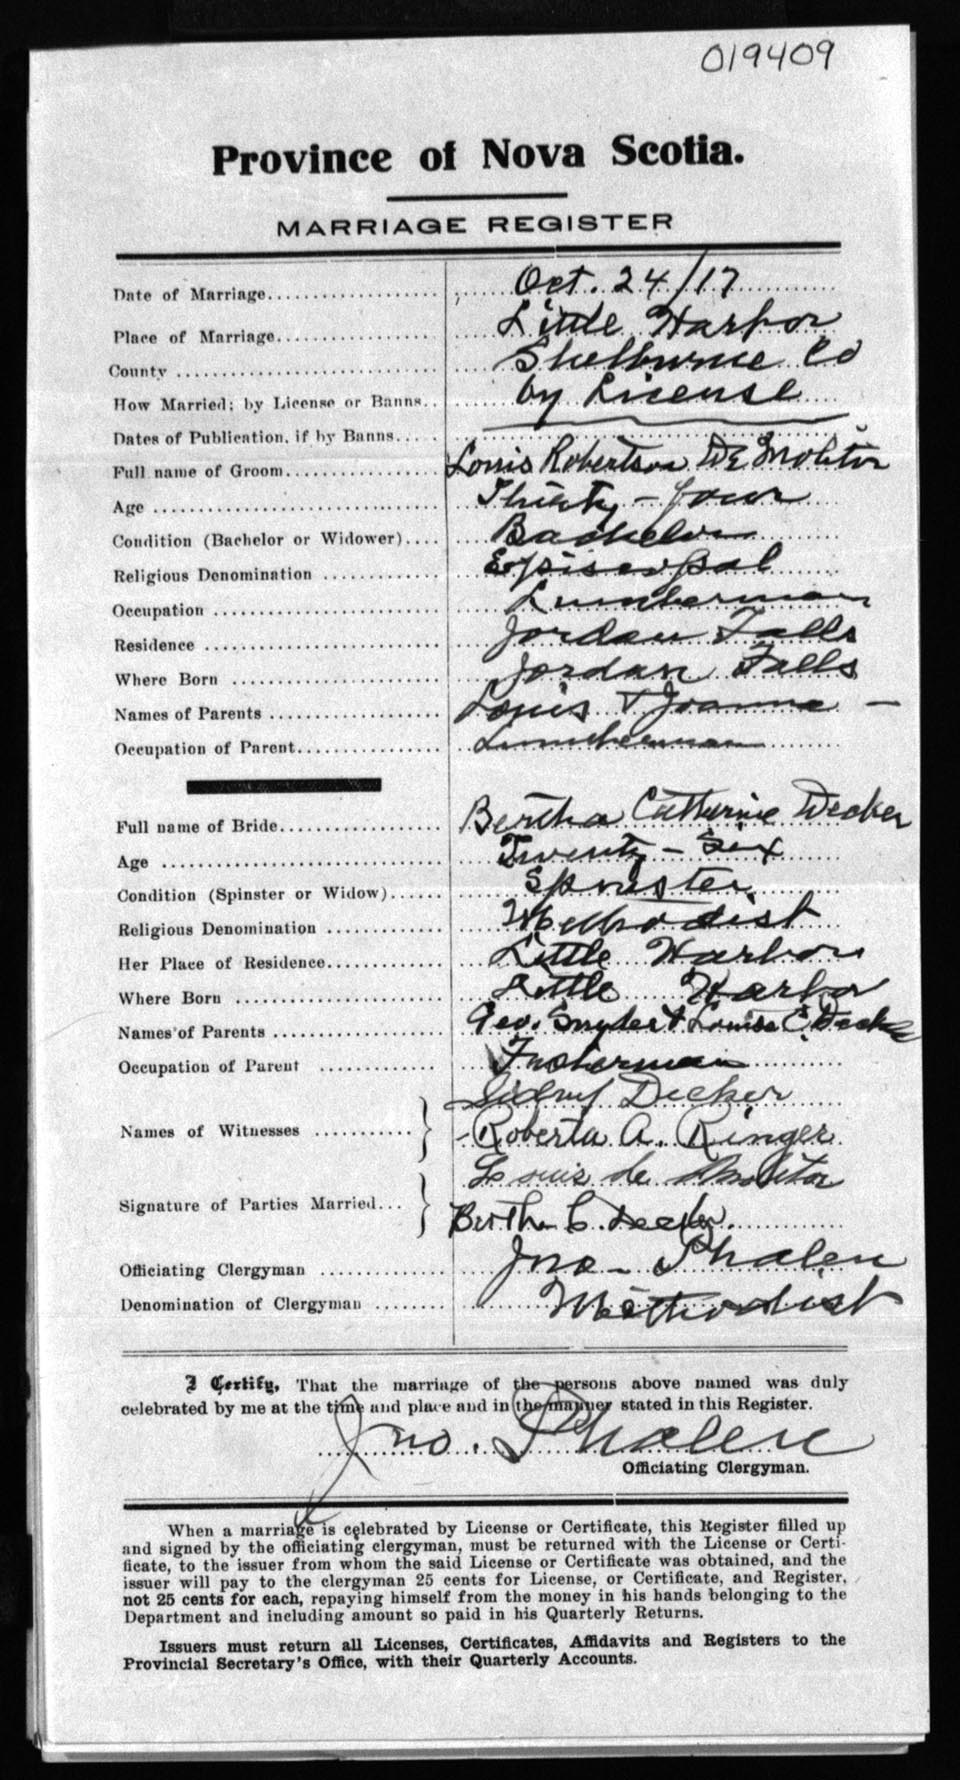 019409
Province of Nova Scotia.
MARRIAGE REGISTER
Date of Marriage Oct. 24/17
Place of Marriage Little Harbor
County Shelburne Co
How Married; by License or Banns by License
Dates of Publication, if by Banns
Full name of Groom Louis Robertson De Molitor
Age Thirty-four
Condition (Bachelor or Widower) Bachelor
Religious Denomination Episcopal
Occupation Lumberman
Residence Jordan Falls
Where Born Jordan Falls
Names of Parents Louis & Joanna —
Occupation of Parent Lumberman
Full name of Bride Bertha Catherine Decker
Age Twenty-Six
Condition (Spinster or Widow) Spinster
Religious Denomination Methodist
Her Place of Residence Little Harbor
Where Born Little Harbor
Names of Parents Geo. Snyder & Louisa C. Decker
Occupation of Parent Fisherman
Sidney Decker
Names of Witnesses Roberta A. Ringer
Louis de Molitor
Signature of Parties Married
Bertha C. Decker.
Officiating Clergyman Jno. Phalen
Denomination of Clergyman Methodist
I Certify, That the marriage of the persons above named was duly
celebrated by me at the time and place and in the manner stated in this Register.
Jno. Phalen
Officiating Clergyman.
When a marriage is celebrated by License or Certificate, this Register filled up
and signed by the officiating clergyman, must be returned with the License or Certi-
ficate, to the issuer from whom the said License or Certificate was obtained, and the
issuer will pay to the clergyman 25 cents for License, or Certificate, and Register,
not 25 cents for each, repaying himself from the money in his hands belonging to the
Department and including amount so paid in his Quarterly Returns.
Issuers must return all Licenses, Certificates, Affidavits and Registers to the
Provincial Secretary's Office, with their Quarterly Accounts.